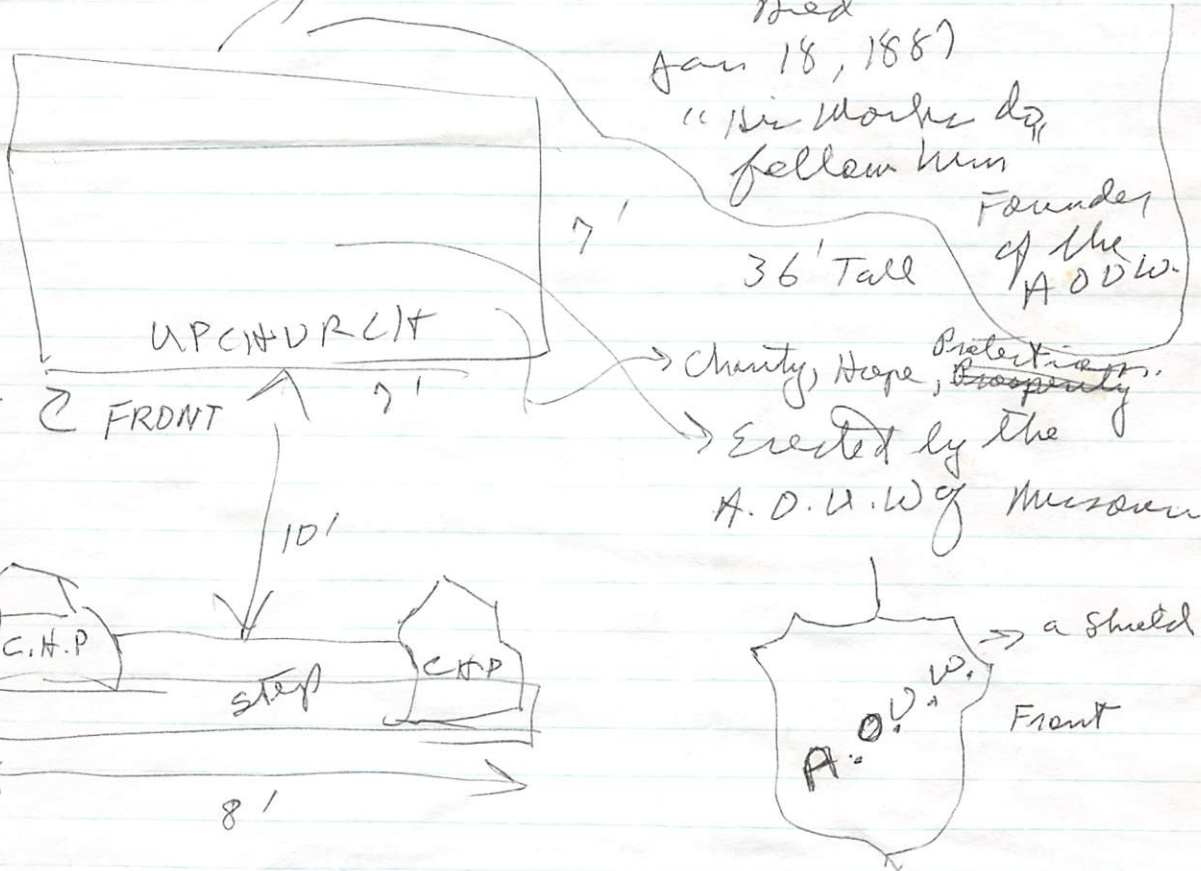 Died
Jan 18, 1887
"His Works do
follow him"
Founder
of the
A O U W.
7'
36' Tall
UPCHURCH
7'
FRONT
Charity, Hope, Protection.
Prosperity
Erected by the
A.O.U.W of Missouri
10'
C.H.P
step
CHP
8'
a Shield
A.O.U.W.
Front